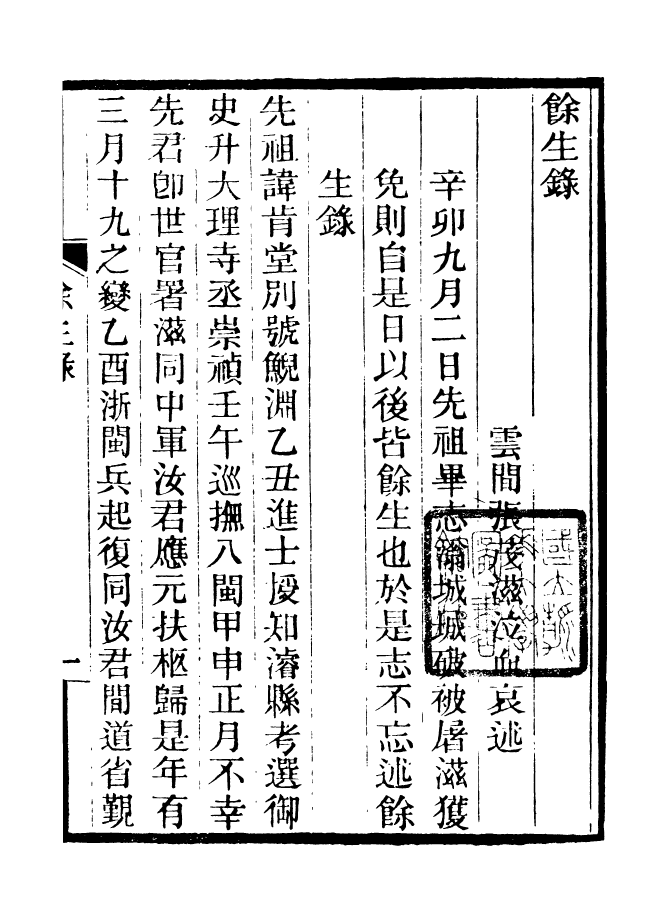 餘生錄
雲間張茂滋泣血哀述
辛卯九月二日先祖畢志瀚城城破被屠滋獲
免則自是日以後皆餘生也於是志不忘述餘
生錄
先祖諱肯堂別號鯢淵乙丑進士授知濬縣考選御
史升大理寺丞崇禎壬午巡撫八閩甲申正月不幸
先君卽世官署滋同中軍汝君應元扶柩歸是年有
三月十九之變乙酉浙閩兵起復同汝君間道省覲
餘生錄
一